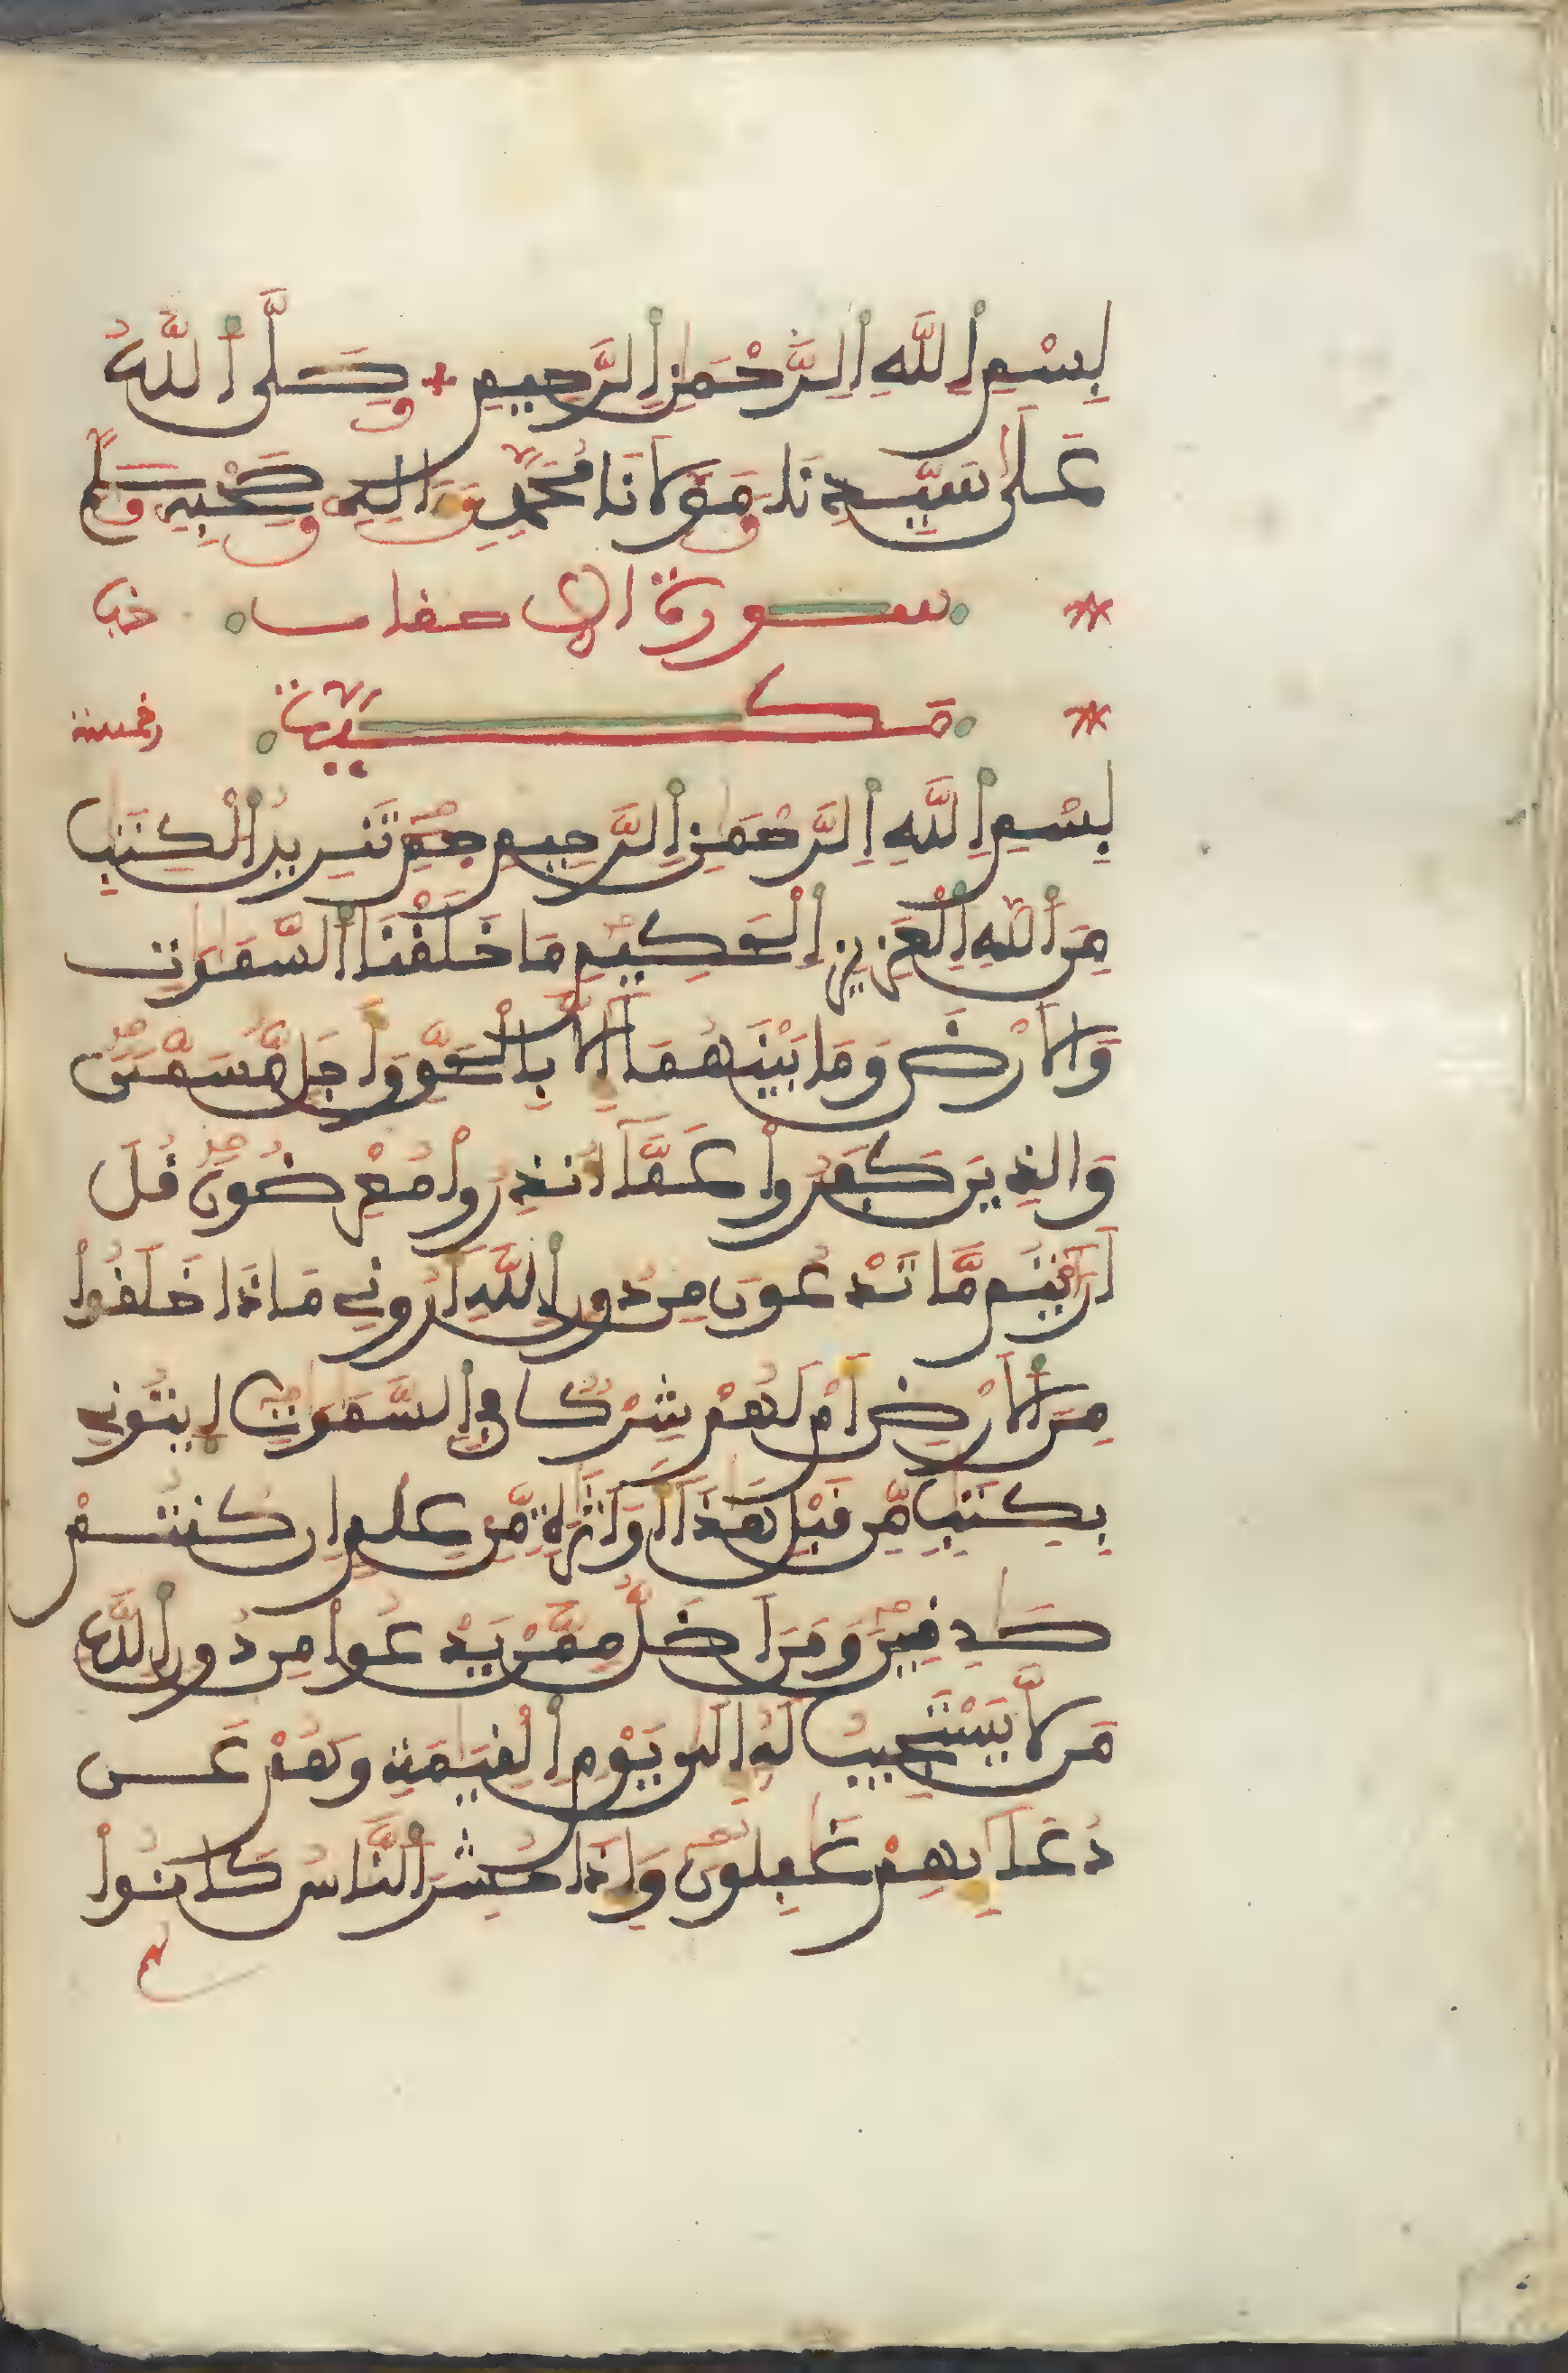 بِسْمِ اِ۬للَّهِ اِ۬لرَّحْمَٰنِ اِ۬لرَّحِيمِ وَصَلَّى اَ۬للَّهُ
عَلَىٰ سَيِّدِنَا وَمَوْلَانَا مُحَمَّدٍ وَءَالِهِ وَصَحْبِهِ وَسَلَّمَ
سورة الاحقاف
مَكِّيَّة
بِسْمِ اِ۬للَّهِ اِ۬لرَّحْمَٰنِ اِ۬لرَّحِيمِ حمٓ تَنزِيلُ اُ۬لْكِتَٰبِ
مِنَ اَ۬للَّهِ اِ۬لْعَزِيزِ اِ۬لْحَكِيمِ مَا خَلَقْنَا اَ۬لسَّمَٰوَٰتِ
وَالَارْضَ وَمَا بَيْنَهُمَآ إِلَّا بِالْحَقِّ وَأَجَلٖ مُّسَمّيٗ
وَالذِينَ كَفَرُواْ عَمَّآ أُنذِرُواْ مُعْرِضُونَ قُلَ
اَرَٰٓيْتُم مَّا تَدْعُونَ مِن دُونِ اِ۬للَّهِ أَرُونِي مَاذَا خَلَقُواْ
مِنَ اَ۬لَارْضِ أَمْ لَهُمْ شِرْكٞ فِي اِ۬لسَّمَٰوَٰتِ اِ۪يتُونِي
بِكِتَٰبٖ مِّن قَبْلِ هَٰذَآ أَوَ اَثَٰرَةٖ مِّنْ عِلْمٍ اِن كُنتُمْ
صَٰدِقِينَ وَمَنَ اَضَلُّ مِمَّنْ يَدْعُواْ مِن دُونِ اِ۬للَّهِ
مَن لَّا يَسْتَجِيبُ لَهُۥٓ إِلَىٰ يَوْمِ اِ۬لْقِيَٰمَةِ وَهُمْ عَن
دُعَآئِهِمْ غَٰفِلُونَ وَإِذَا حُشِرَ اَ۬لنَّاسُ كَانُواْ